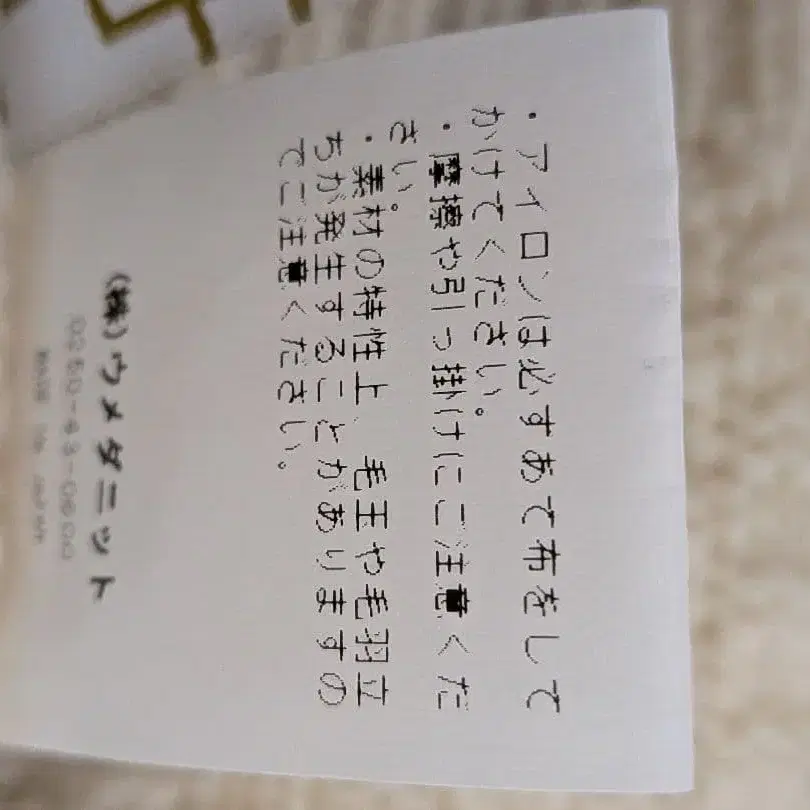 ・アイロンは必ずあて布をして
かけてください。
・摩擦や引っ掛けにご注意くだ
さい。
・素材の特性上、毛玉や毛羽立
ちが発生することがありますの
でご注意ください。
(株)ウメダニット
0250-43-0600